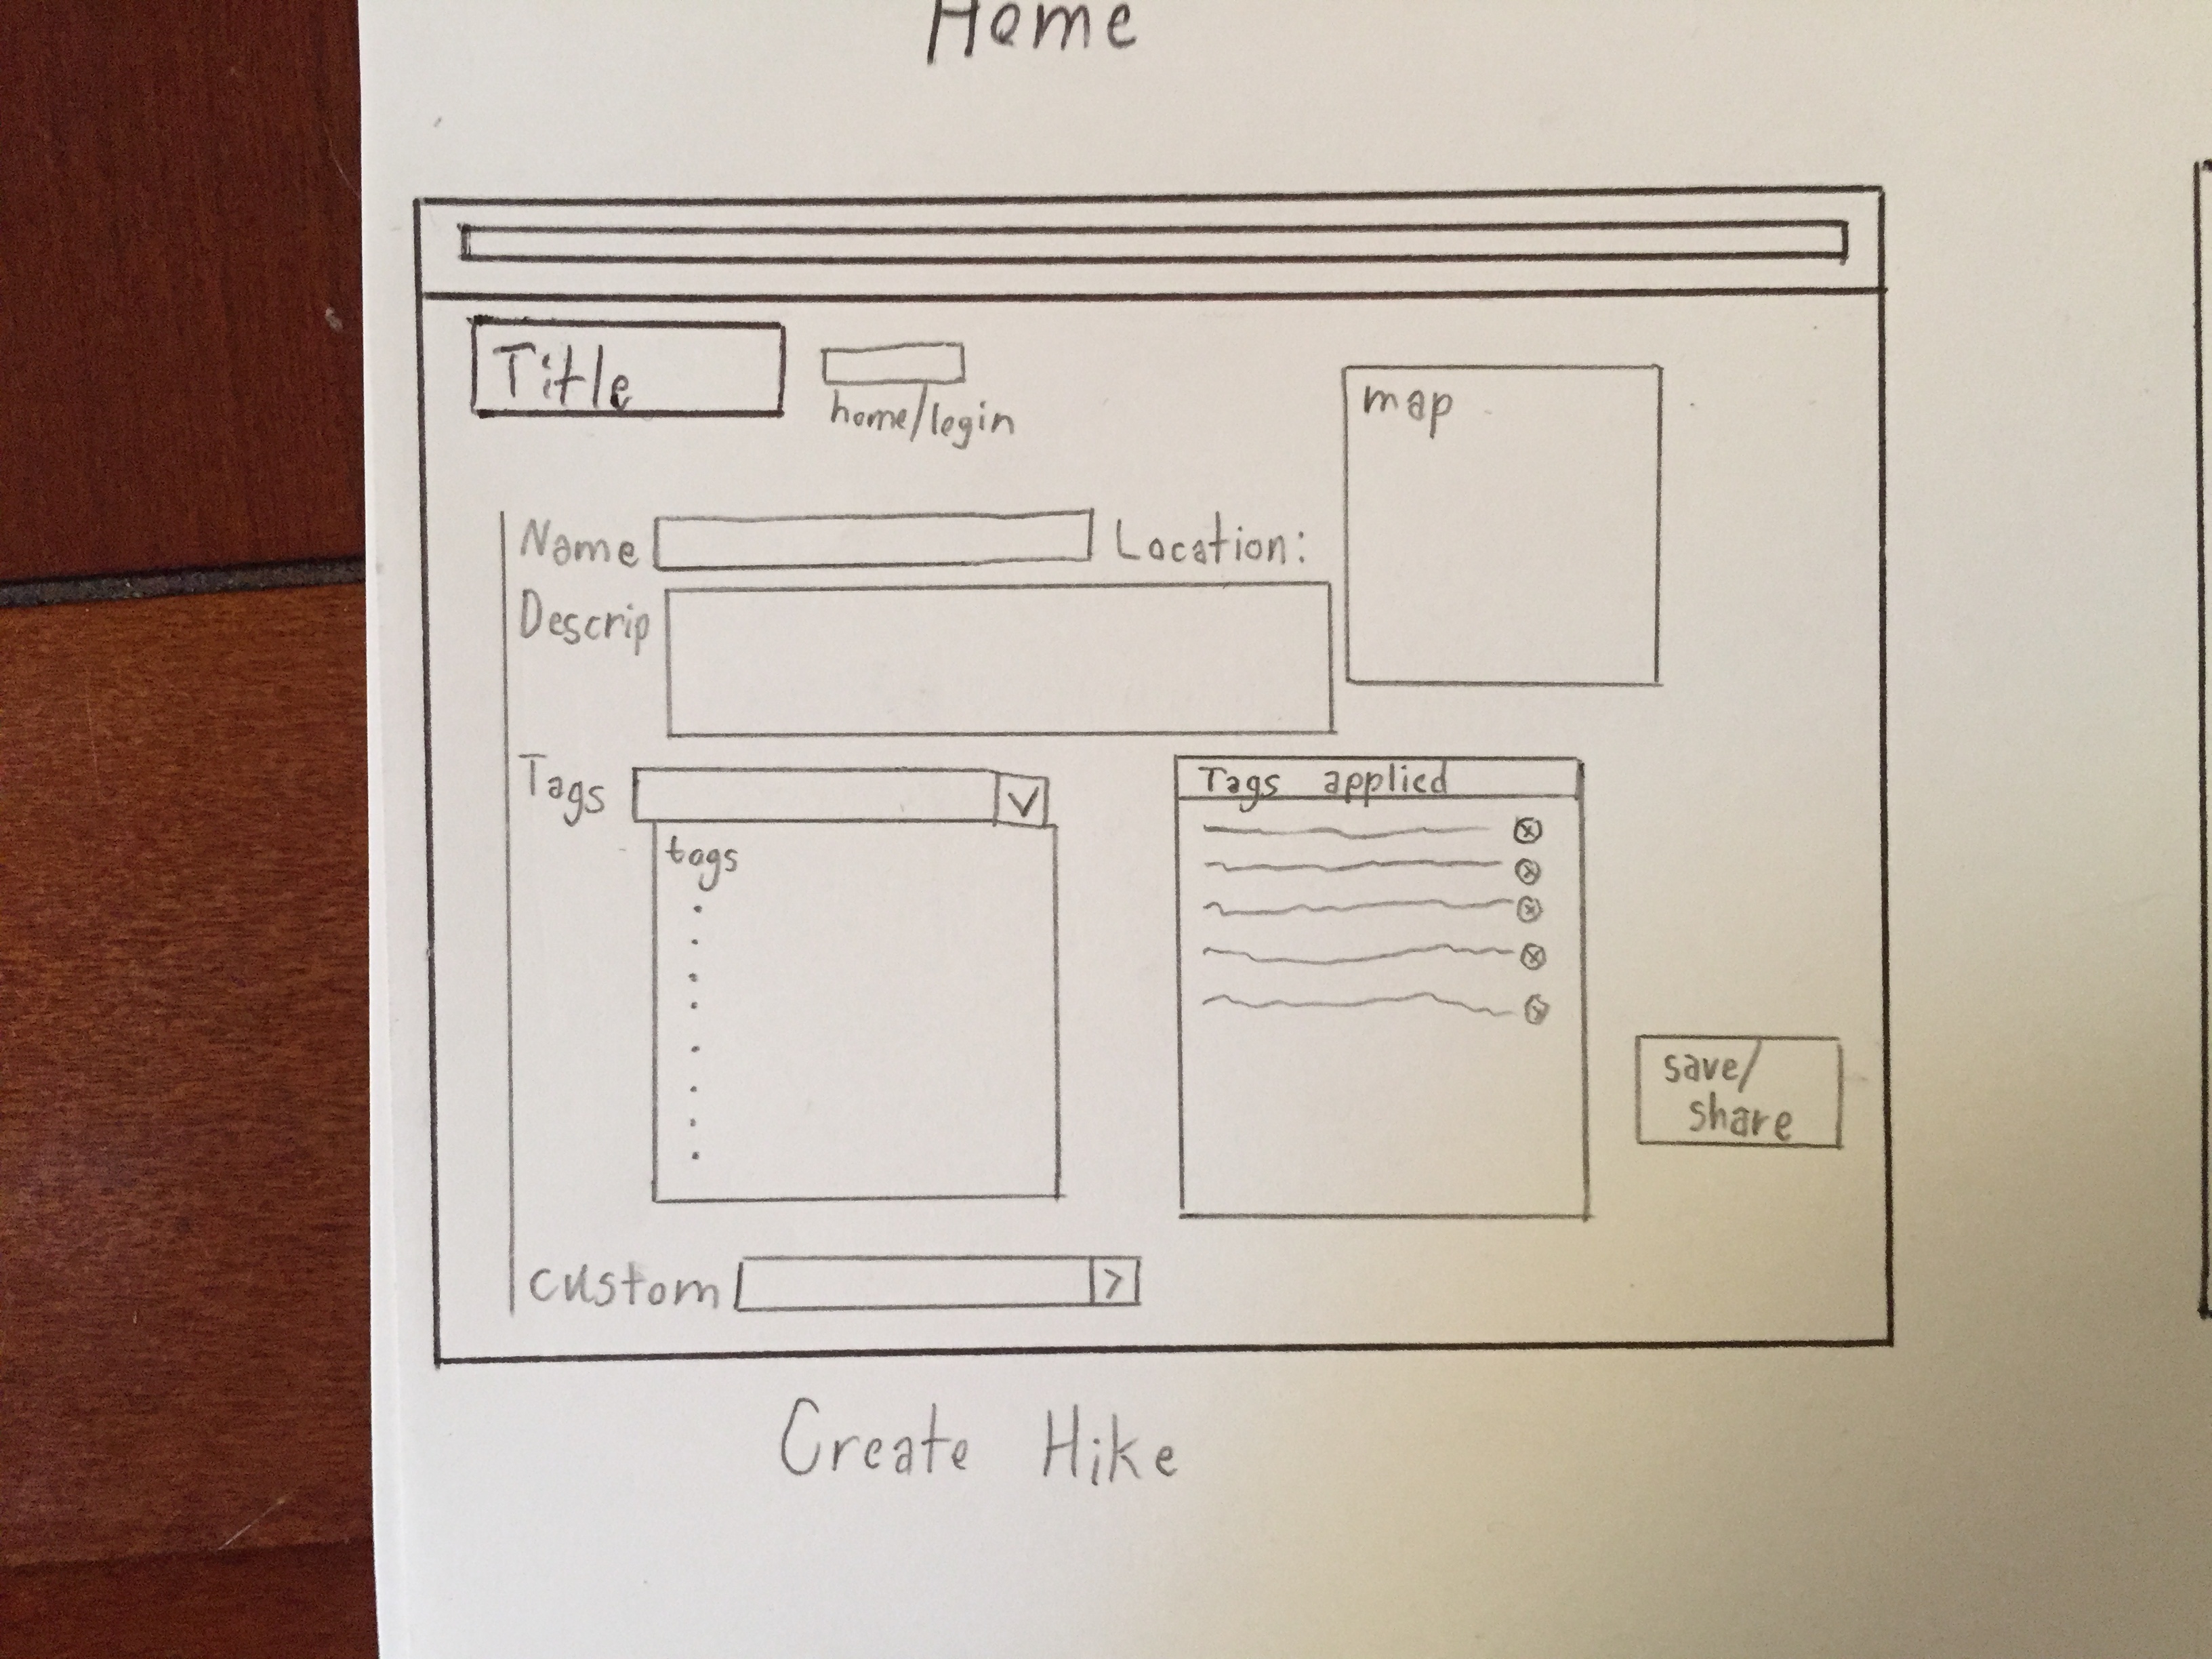 Home
Title
home/login
map
Name
Location:
Descrip
Tags
Tags applied
tags
save/
share
custom
Create Hike